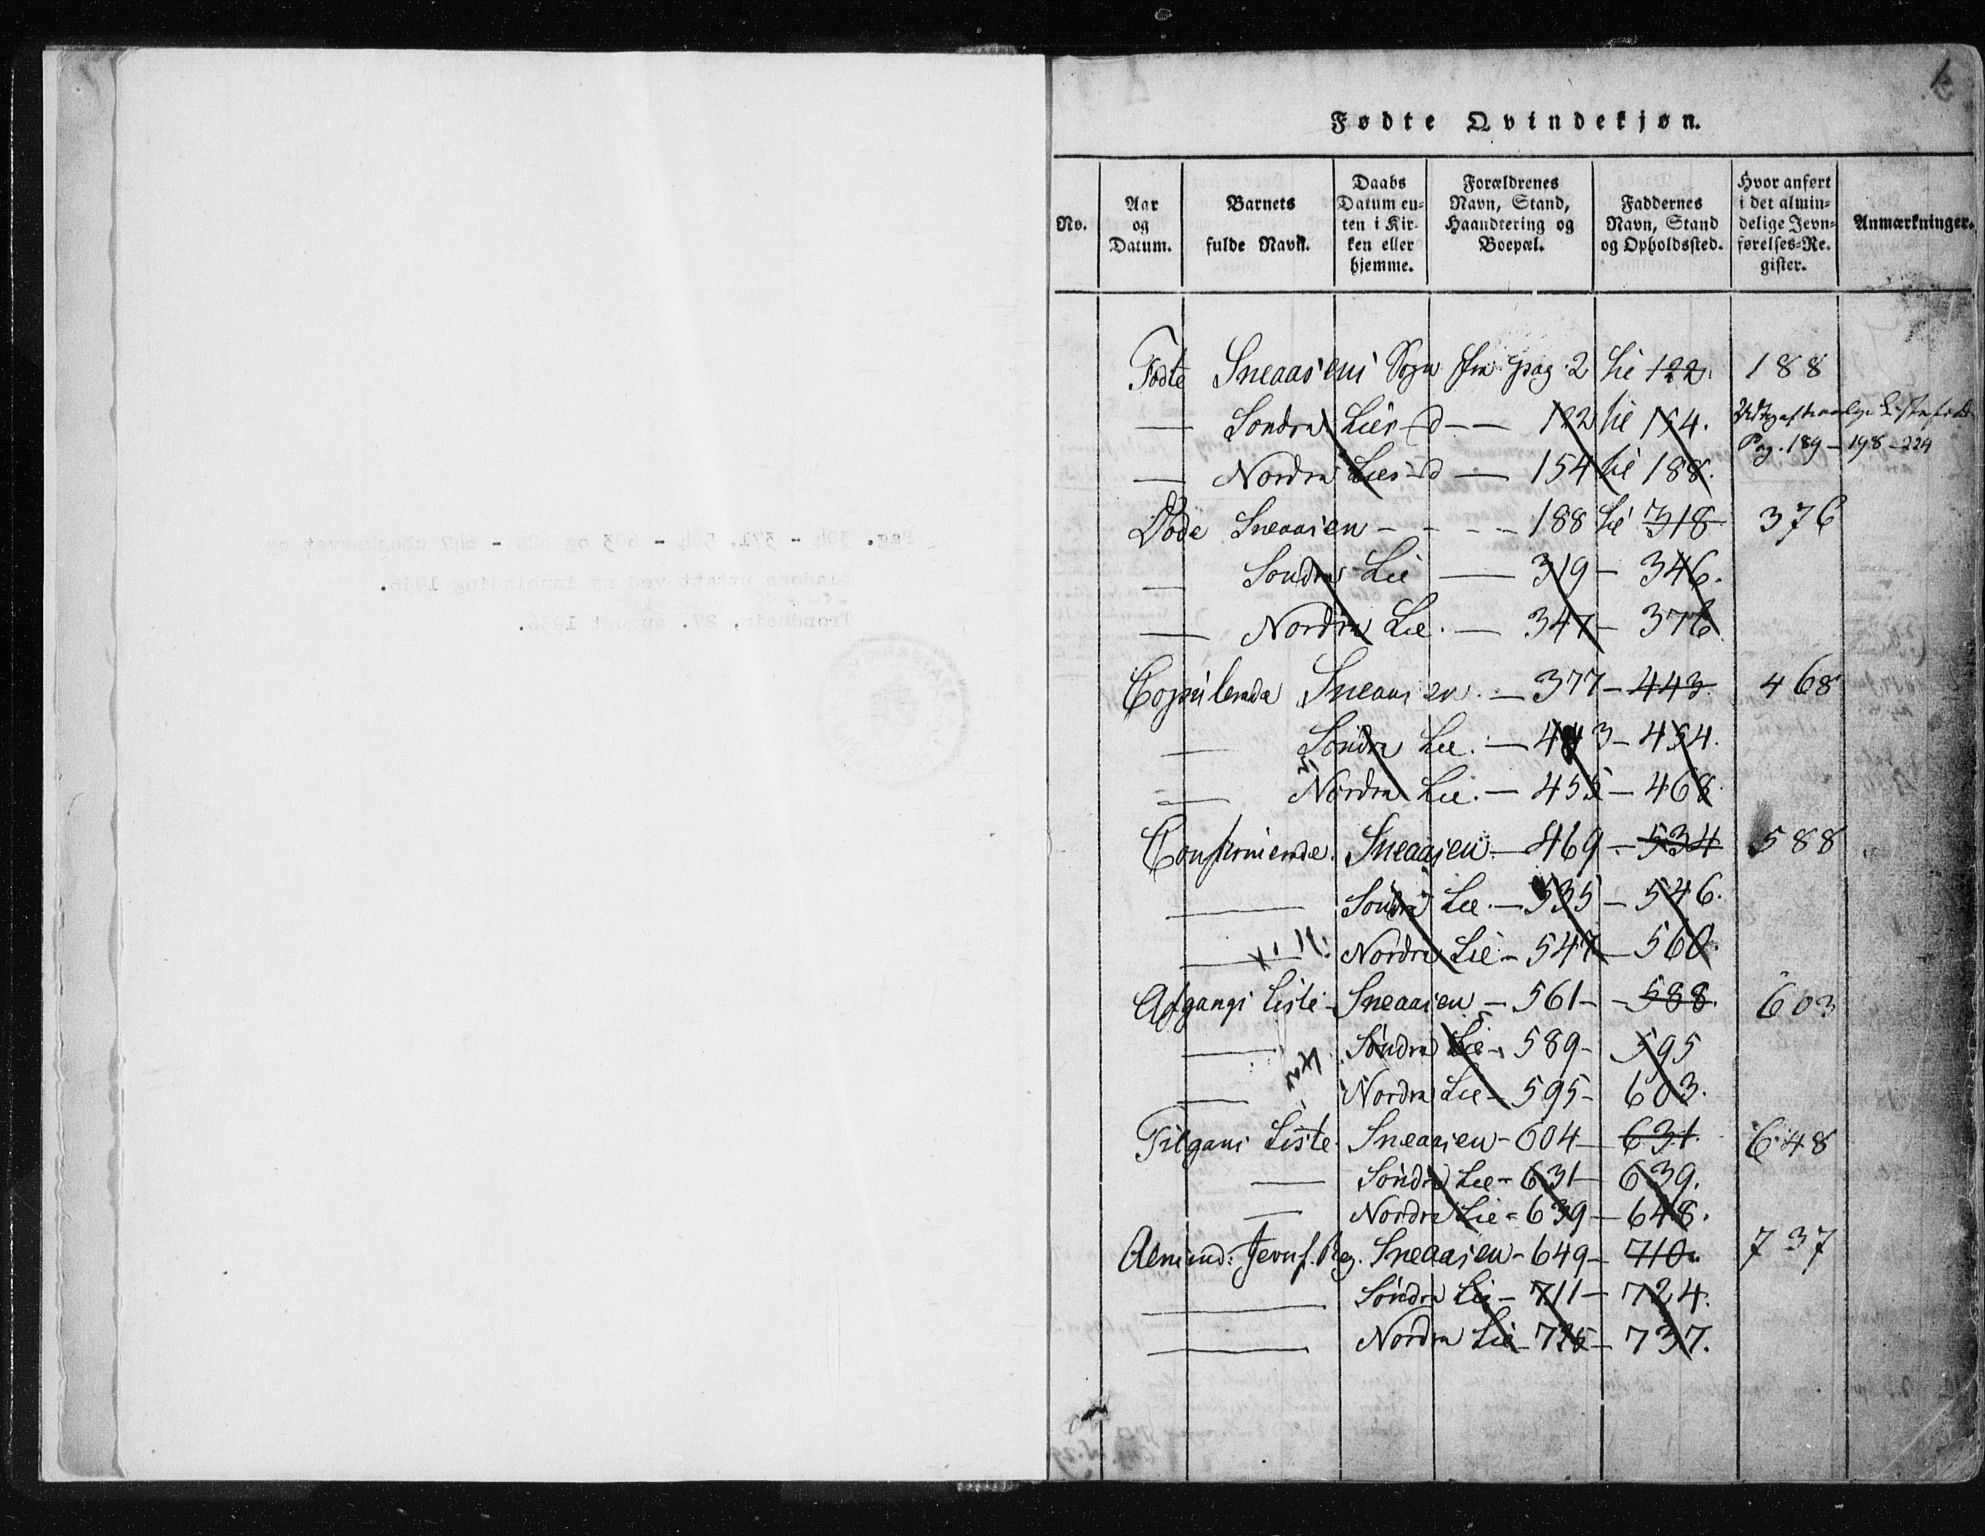 Fødte Qvindekjøn.
No.
Aar og Datum.
Barnets fulde Navn.
Daabs Datum enten i Kirken eller hjemme.
Forældrenes Navn, Stand, Haandtering og Boepæl.
Faddernes Navn, Stand og Opholdssted.
Hvor anført i det almindelige Jevnførelses-Register.
Anmærkninger.
Fødte Sneaasens Sogn fra pag. 2 til 122. 188
— Søndre Lies — d — 122 til 154.
Pag. 189 — 198 — 229
— Nordre Lies — d — 154 til 188.
Døde Sneaasen - - - - 188 til 318 376
— Søndre Lie — 319 — 346.
— Nordre Lie. — 347 — 376
Copulerede Sneaasen. — 377 — 443. 468
— Søndre Lie. — 443 — 454.
— Nordre Lie. — 455 — 468
Confirmerede. Sneaasen. — 469 — 534 588
— Søndre Lie. — 535 — 546.
— Nordre Lie — 547 — 560.
Afgangs Liste — Sneaasen — 561 — 588. 603
— Søndre Lie — 589 — 595
— Nordre Lie — 595 — 603.
Tilgans Liste Sneaasen — 604 — 631. 648
— Søndre Lie — 631 — 639.
— Nordre Lie — 639 — 648.
Almind: Jevnf. Reg. Sneaasen — 649 — 710. 737
— Søndre Lie — 711 — 724.
— Nordre Lie — 725 — 737.
Pag. 304 - 371. 504 -
bladene uttatt ved ny innbinding 1936.
Trondheim, 27. august 1936.